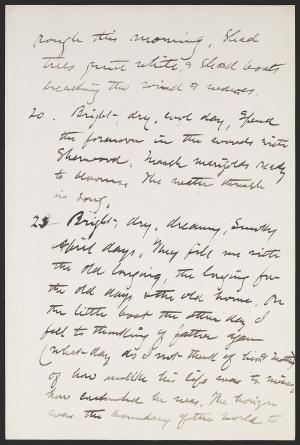 rough this morning, Shad
trees quite white, & Shad boats
breasting the wind & waves.
20. Bright, dry, cool day, Spend
the forenoon in the woods with
Sherwood. Marsh marigolds ready
to bloom. The water thrush
in song.
23 Bright, dry, dreamy, smoky
April days, They fill me with
the old longing, the longing for
the old days & the old home. On
the little boat the other day I
fell to thinking of father again
(what day do I not think of him?)
of how unlike his life was to mine
how contented he was. The horizon
was the boundary of the world to